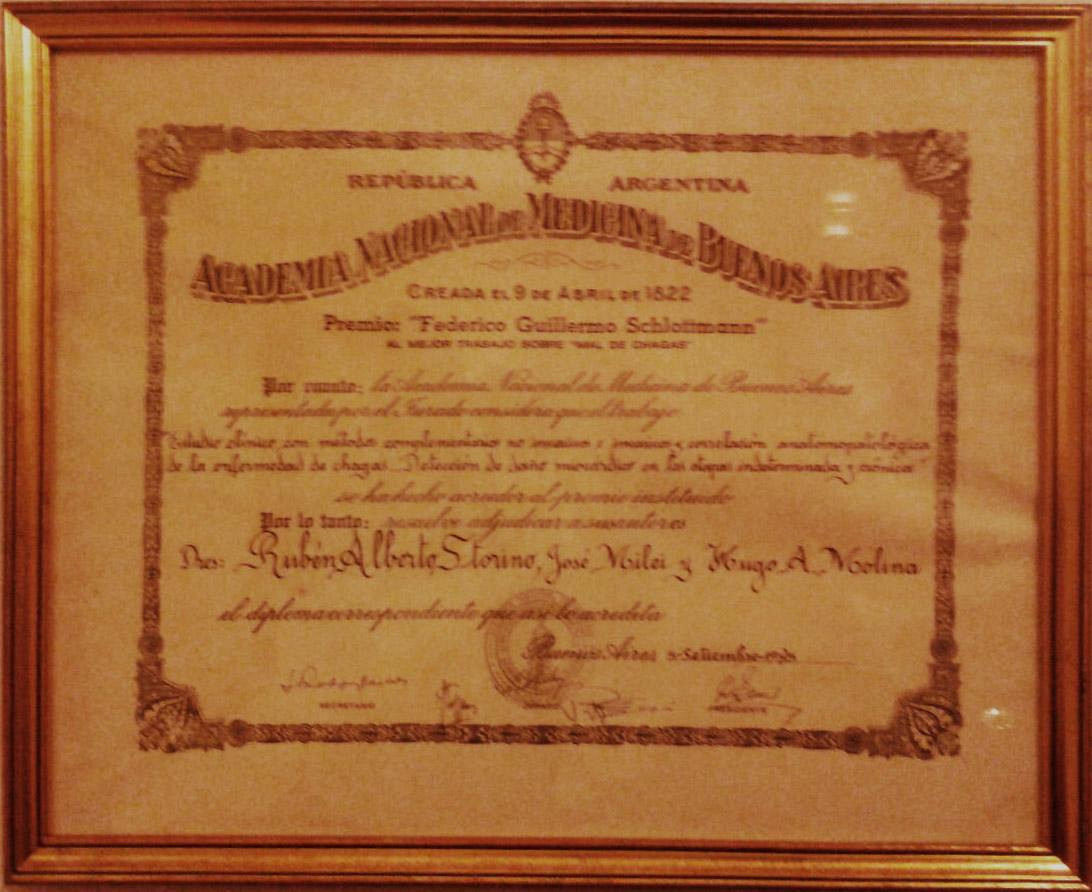 REPÚBLICA ARGENTINA
ACADEMIA NACIONAL DE MEDICINA DE BUENOS AIRES
CREADA EL 9 DE ABRIL DE 1822
Premio: "Federico Guillermo Schlottmann"
AL MEJOR TRABAJO SOBRE "MAL DE CHAGAS"
Por cuanto: la Academia Nacional de Medicina de Buenos Aires
representada por el Jurado considera que el trabajo
"Estudio clínico con métodos complementarios no invasivos e invasivos y correlación anatomopatológica
de la enfermedad de chagas. Detección de daño miocárdico en las etapas indeterminada y crónica"
se ha hecho acreedor al premio instituido
Por lo tanto: resuelve adjudicar a sus autores
Dres: Rubén Alberto Storino, José Milei y Hugo A. Molina
el diploma correspondiente que así lo acredita
Buenos Aires Setiembre
SECRETARIO PRESIDENTE